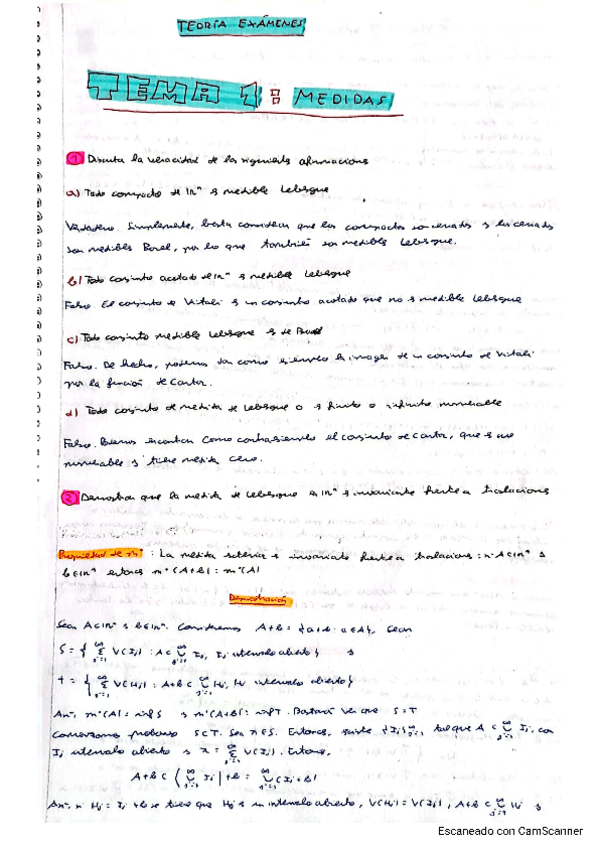 TEORÍA EXÁMENES
TEMA 1: MEDIDAS
1 Discuta la veracidad de las siguientes afirmaciones
a) Todo compacto de IRⁿ es medible Lebesgue
Verdadero. Simplemente, basta considerar que los compactos son cerrados y los cerrados
son medibles Borel, por lo que también son medibles Lebesgue.
b) Todo conjunto acotado de IRⁿ es medible Lebesgue
Falso. El conjunto de Vitali es un conjunto acotado que no es medible Lebesgue
c) Todo conjunto medible Lebesgue es de Borel
Falso. De hecho, podemos dar como ejemplo la imagen de un conjunto de Vitali
por la función de Cantor.
d) Todo conjunto de medida de Lebesgue 0 es finito o infinito numerable
Falso. Podemos encontrar como contraejemplo el conjunto de Cantor, que es no
numerable y tiene medida cero.
2 Demostrar que la medida de Lebesgue en IRⁿ es invariante frente a traslaciones
Propiedad de m* : La medida exterior es invariante frente a traslaciones: si A⊂IRⁿ y
b∈IRⁿ entonces m*(A+b) = m*(A)
Demostración
Sean A⊂IRⁿ y b∈IRⁿ. Consideremos A+b = {a+b : a∈A}. Sean
S = { ∑ V(Ij) : A⊂ ∪ Ij, Ij intervalo abierto } y
T = { ∑ V(Hj) : A+b ⊂ ∪ Hj, Hj intervalo abierto }
Así, m*(A) = inf S y m*(A+b) = inf T. Bastará ver que S=T
Comenzamos probando S⊂T. Sea x∈S. Entonces, existe {Ij} tal que A ⊂ ∪ Ij, con
Ij intervalo abierto y x = ∑ V(Ij). Entonces,
A+b ⊂ (∪ Ij) + b = ∪ (Ij+b)
Así, si Hj = Ij + b se tiene que Hj es un intervalo abierto, V(Hj) = V(Ij), A+b ⊂ ∪ Hj y
Escaneado con CamScanner